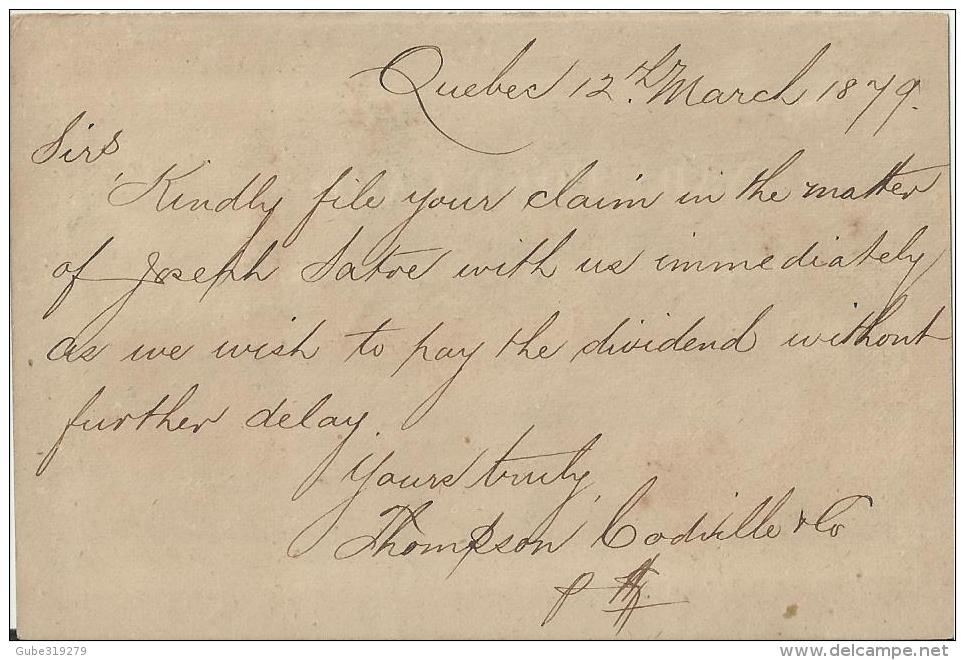 Quebec 12th March 1879.
Sirs
Kindly file your claim in the matter
of Joseph Satoe with us immediately
as we wish to pay the dividend without
further delay.
Yours truly
Thompson Codville & Co
P
Gube319279
www.delcampe.net